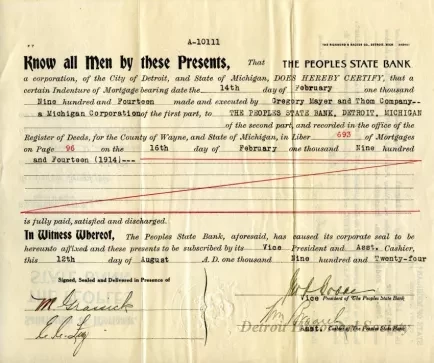 A-10111
Know all Men by these Presents, That THE PEOPLES STATE BANK
a corporation, of the City of Detroit, and State of Michigan, DOES HEREBY CERTIFY, that a
certain Indenture of Mortgage bearing date the 14th day of February one thousand
Nine hundred and Fourteen made and executed by Gregory Mayer and Thom Company--
a Michigan Corporation of the first part, to THE PEOPLES STATE BANK, DETROIT, MICHIGAN
of the second part, and recorded in the office of the
Register of Deeds, for the County of Wayne, and State of Michigan, in Liber 693 of Mortgages
on Page 96 on the 16th day of February one thousand Nine hundred
and Fourteen (1914)---
is fully paid, satisfied and discharged.
In Witness Whereof, The Peoples State Bank, aforesaid, has caused its corporate seal to be
hereunto affixed and these presents to be subscribed by its Vice President and Asst. Cashier,
this 12th day of August A. D. one thousand Nine hundred and Twenty-four
Signed, Sealed and Delivered in Presence of
Vice President of The Peoples State Bank
Detroit Historical Society
Asst. Cashier of The Peoples State Bank